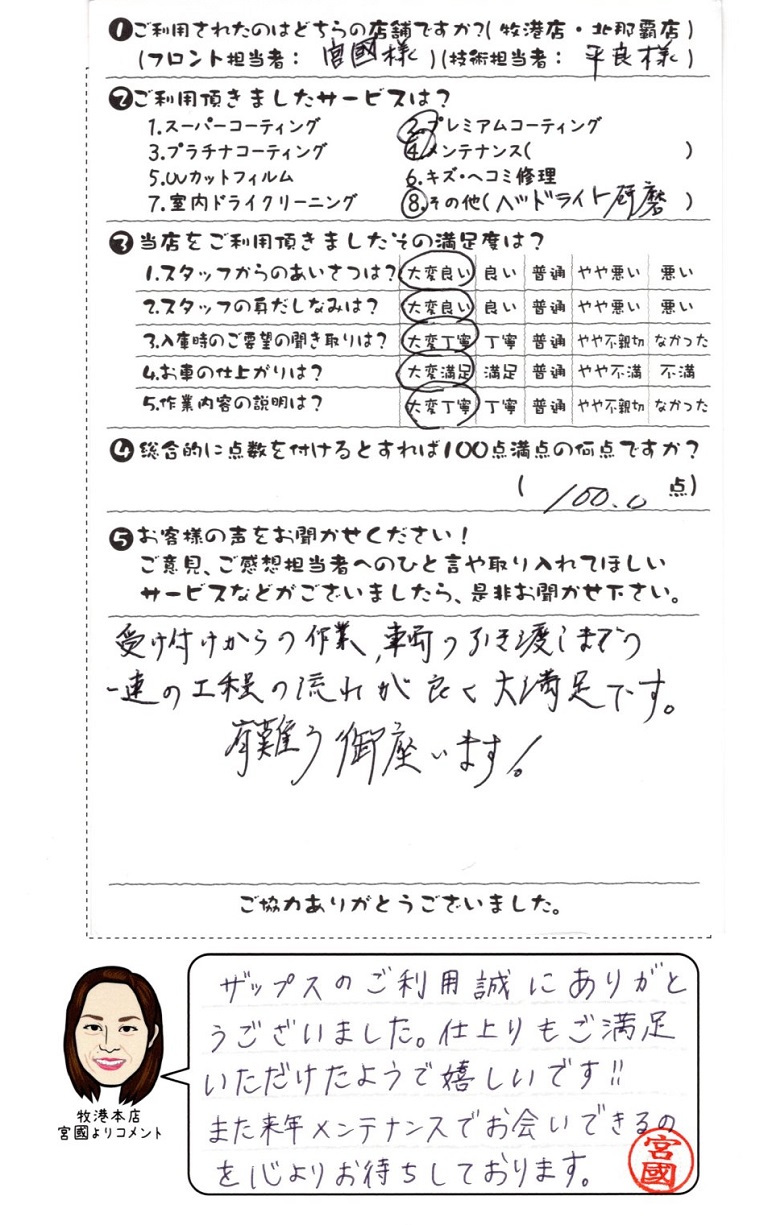 ❶ご利用されたのはどちらの店舗ですか？(牧港店・北那覇店)
(フロント担当者： 宮國様 )(技術担当者： 平良様 )
❷ご利用頂きましたサービスは？
1.スーパーコーティング 2.プレミアムコーティング
3.プラチナコーティング 4.メンテナンス( )
5.UVカットフィルム 6.キズ・ヘコミ修理
7.室内ドライクリーニング 8.その他(ヘッドライト研磨 )
❸当店をご利用頂きましたその満足度は？
1.スタッフからのあいさつは？ 大変良い 良い 普通 やや悪い 悪い
2.スタッフの身だしなみは？ 大変良い 良い 普通 やや悪い 悪い
3.入庫時のご要望の聞き取りは？ 大変丁寧 丁寧 普通 やや不親切 なかった
4.お車の仕上がりは？ 大変満足 満足 普通 やや不満 不満
5.作業内容の説明は？ 大変丁寧 丁寧 普通 やや不親切 なかった
❹総合的に点数を付けるとすれば100点満点の何点ですか？
( 100.0 点)
❺お客様の声をお聞かせください！
ご意見、ご感想担当者へのひと言や取り入れてほしい
サービスなどがございましたら、是非お聞かせ下さい。
受け付けからの作業、車両の引き渡しまでの
一連の工程の流れが良く大満足です。
有難う御座います！
ご協力ありがとうございました。
ザップスのご利用誠にありがと
うございました。仕上りもご満足
いただけたようで嬉しいです!!
また来年メンテナンスでお会いできるの
を心よりお待ちしております。
宮國
牧港本店
宮國よりコメント